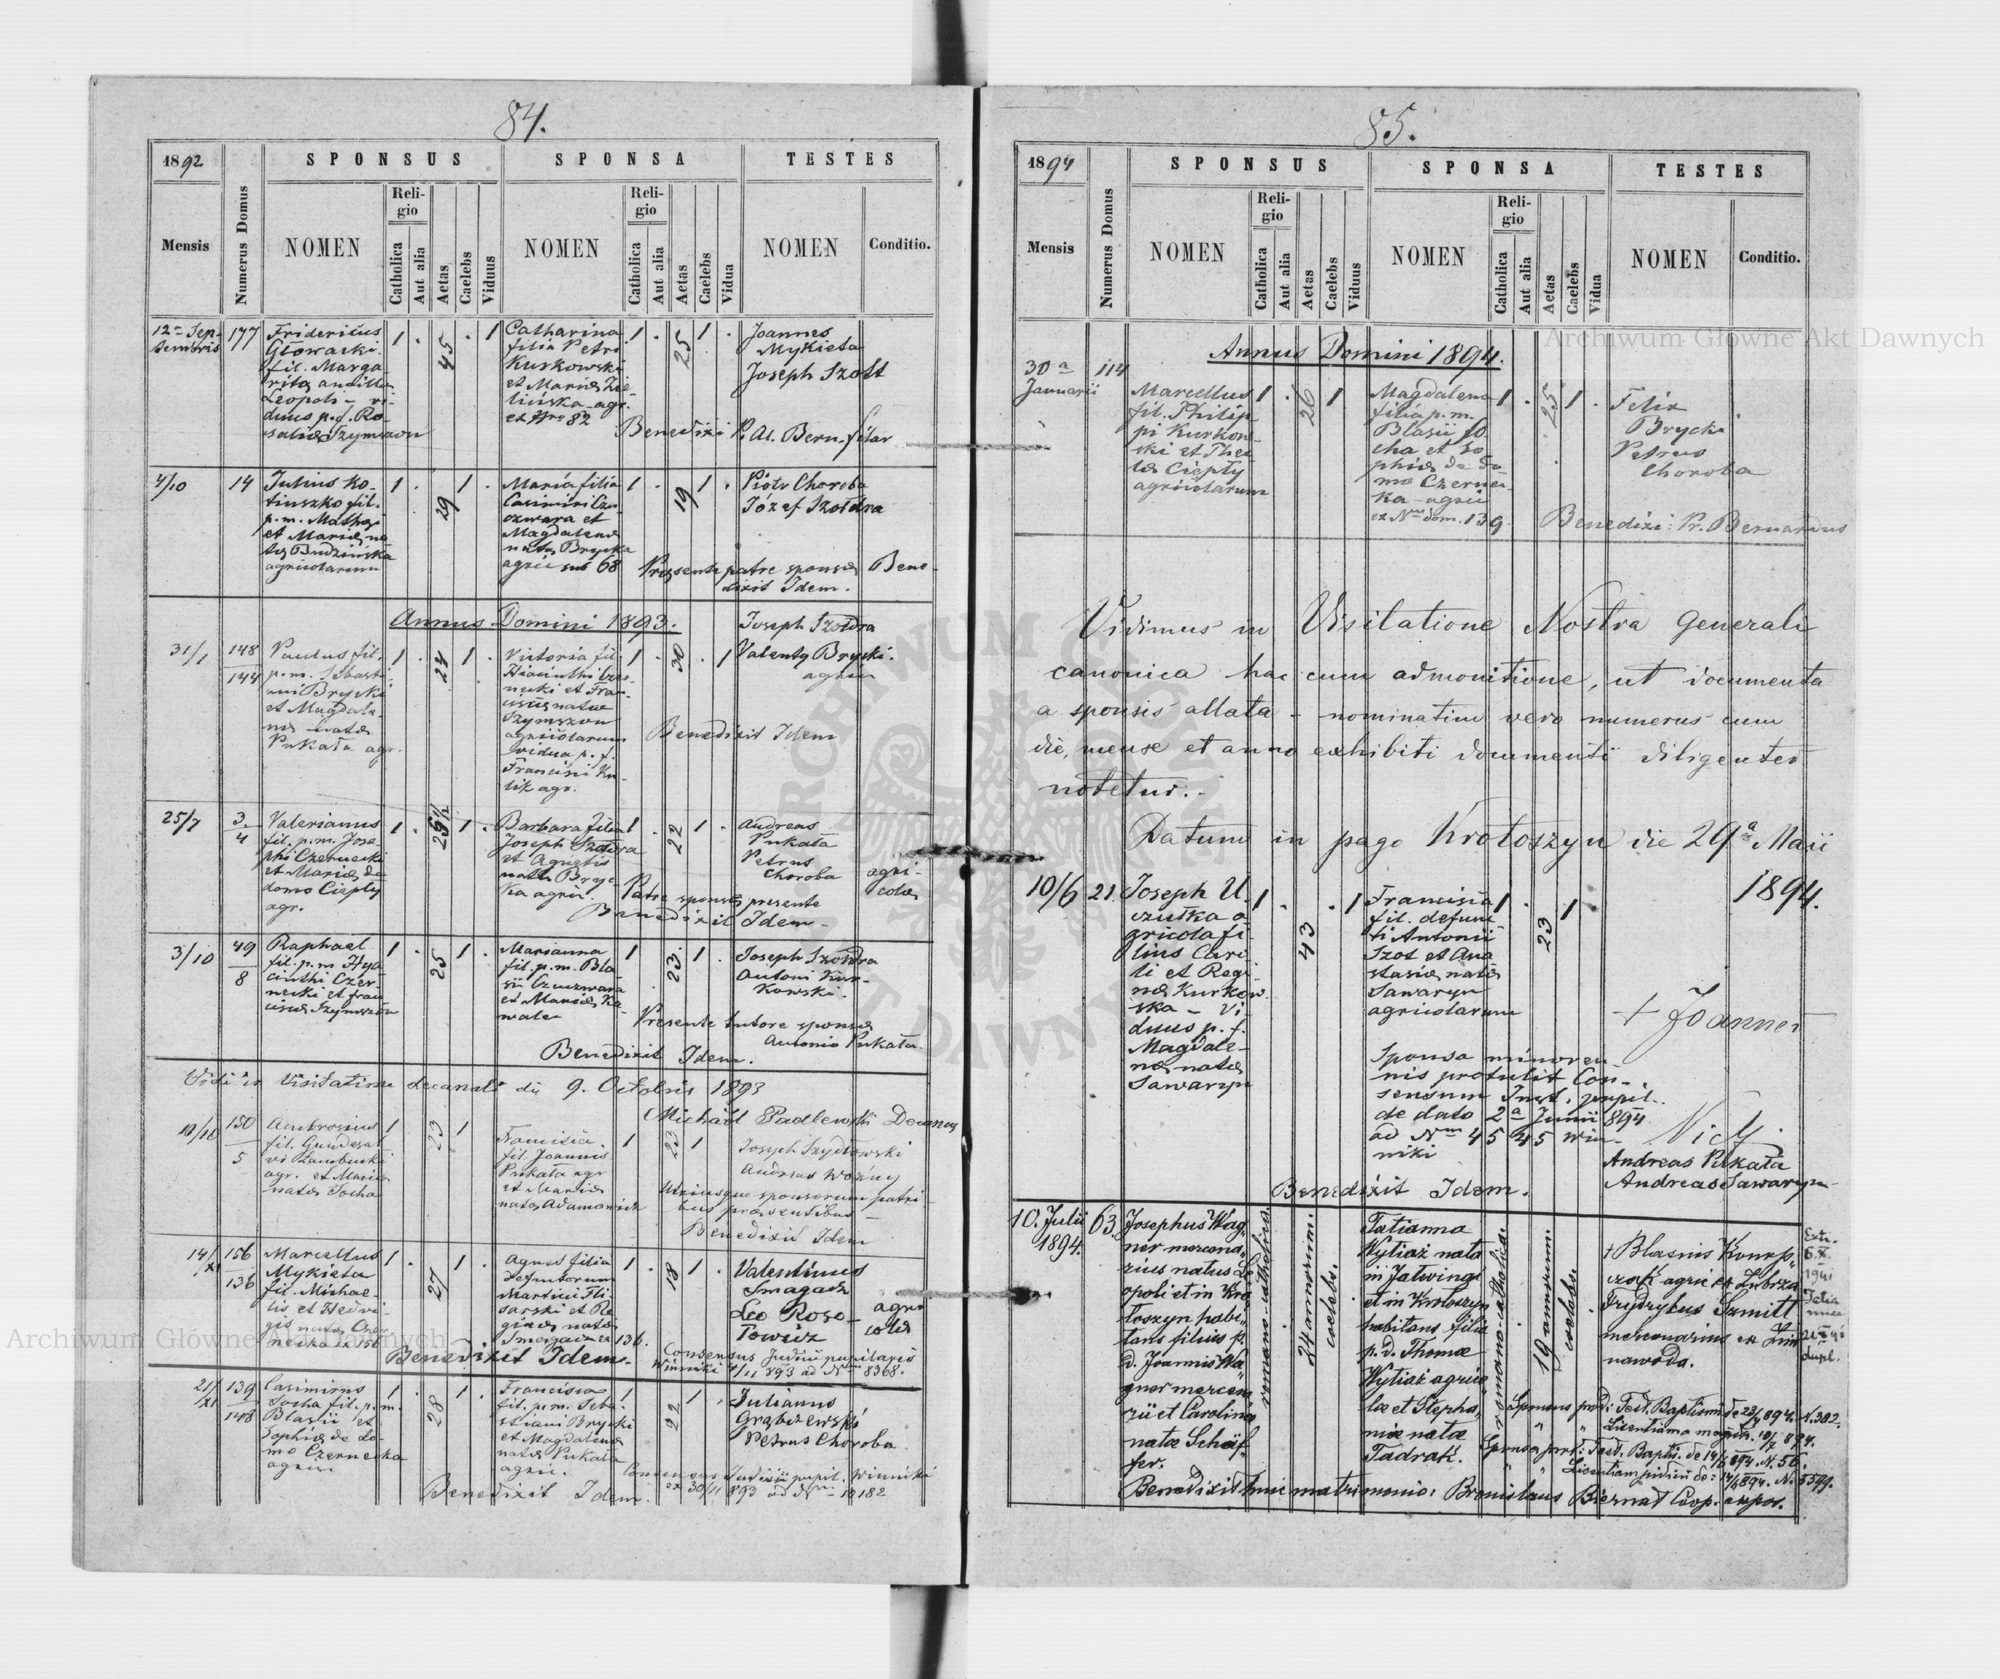 84.
1892
SPONSUS
SPONSA
TESTES
Mensis
Numerus Domus
NOMEN
Religio
Catholica
Aut alia
Aetas
Caelebs
Viduus
NOMEN
Religio
Catholica
Aut alia
Aetas
Caelebs
Vidua
NOMEN
Conditio.
12a Sep-
tembris
177
Fridericus
Głowacki
fil. Marga
ritæ ancillæ
Leopoli – vi-
duus p. d. Ro-
saliæ Szymszon
1 . 45 . 1
Catharina
filia Petri
Kurkowski
et Mariæ Zie
lińska agr.
ex Nro 82
1 . 25 1 .
Joannes
Mykieta
Joseph Szott
Benedixi P. Al. Bern. filar
4/10
14
Julius Ko-
tiuszko fil.
p.m. Mathæi
et Mariæ na
tæ Budzińska
agricolarum
1 . 29 1 .
Maria filia
Casimiri Czu
czwara et
Magdalenæ
natæ Brycka
agric sub 68
1 . 19 1 .
Piotr Choroba
Józef Szołdra
Præsente patre sponsæ Bene-
dixit Idem.
Annus Domini 1893.
31/1
148
144
Paulus fil.
p.m. Sebasti
ani Brycki
et Magdale-
næ natæ
Pukała agr.
1 . 24 1 .
Victoria fil.
Hiacinthi Czer
necki et Fran-
ciscæ natae
Szymszon
agricolarum
vidua p. f.
Francisci Ku-
lik agr.
1 . 30 . 1
Joseph Szołdra
Valenty Brycki.
agric
Benedixit Idem
25/7
3
4
Valerianus
fil. p.m. Jose
phi Czernecki
et Mariæ de
domo Ciepły
agr.
1 . 25½ 1 .
Barbara filia
Joseph Szołdra
et Agnetis
natæ Bryc
ka agric.
1 . 22 1 .
Andreas
Pukała
Petrus
Choroba
agri-
colæ
Patre sponsæ presente
Benedixit Idem.
3/10
49
8
Raphael
fil. p.m. Hya
cinthi Czer-
necki et fran
ciscæ Szymszon
1 . 25 1 .
Marianna
fil. p.m. Bla-
sii Czuczwara
et Mariæ Ko-
walec
1 . 23 1 .
Joseph Szołdra
Antoni Kur-
kowski.
Presente tutore sponsæ
Antonio Pukała
Benedixit Idem.
Vidi in Visitatione decanali die 9. Octobris 1893
Michaël Padlewski Decanus
10/10
150
5
Ambrosius
fil. Gundesal
vi Lambucki
agr. et Mariæ
natæ Socha
1 23 1
Francisca
fil. Joannis
Pukała agr
et Mariæ
natæ Adamowicz
1 23 1
Joseph Szydłowski
Andreas Woźny
Utriusque sponsorum patri-
bus præsentibus
Benedixit Idem
14/XI
156
136
Marcellus
Mykieta
fil. Michae-
lis et Hedvi-
gis natæ Czer
necka ex 156
1 . 27 1 .
Agnes filia
defunctorum
Martini Fli
sarski et Re
ginæ natæ
Smagacz ex 136.
1 . 18 1 .
Valentinus
Smagacz
Leo Rose-
Towicz
agri
colæ
Benedixit Idem.
Consensus Judicii pupilaris
Winniki 4/11 893 ad Nm 8368.
21/XI
139
148
Casimirus
Socha fil. p. m.
Blasii et
Sophiæ de do-
mo Czernecka
agric
1 . 28 1 .
Francisca
fil. p.m. Seba
stiani Brycki
et Magdalenæ
natæ Pukała
agric.
1 . 22 1 .
Julianus
Grąbczewski
Petrus Choroba
Consensus Judicii pupil. Winniki
ex 30/11 893 ad Nm 10182
Benedixit Idem.
85.
1894
SPONSUS
SPONSA
TESTES
Mensis
Numerus Domus
NOMEN
Religio
Catholica
Aut alia
Aetas
Caelebs
Viduus
NOMEN
Religio
Catholica
Aut alia
Aetas
Caelebs
Vidua
NOMEN
Conditio.
Annus Domini 1894.
30a
Januarii
114
Marcellus
fil. Philip
pi Kurkow-
ski et Thec
læ Ciepły
agricolarum
1 . 26 1
Magdalena
filia p.m.
Blasii So
cha et So
phiæ de do-
mo Czernec
ka – agric
ex Nro dom. 139.
1 . 25 1 .
Felix
Brycki
Petrus
Choroba
Benedixi: Pr. Bernardus
Vidimus in Visitatione Nostra Generali
canonica hac cum admonitione, ut documenta
a sponsis allata – nominatim vero numerus cum
die, mense et anno exhibiti documenti diligenter
notetur. –
Datum in pago Krotoszyn die 29a Maii
1894.
10/6
21.
Joseph U.
czułka a-
gricola fi-
lius Ciri-
li et Regi-
næ Kurkow-
ska – vi
duus p. f.
Magdale-
næ natæ
Sawaryn
1 . 43 . 1
Francisca
fil. defunc
ti Antonii
Szot et Ana
stasiæ natæ
Sawaryn
agricolarum
1 . 23 1
+ Joannes
Sponsa minoren
nis protulit Con-
sensum Inst. pupil.
de dato 2a Junii 894
ad Nm 4545 Win-
niki
Andreas Pukała
Andreas Sawaryn
Benedixit Idem.
10. Julii
1894.
63.
Josephus Wag-
ner mercena-
rius natus Le
opoli et in Kro
toszyn habi-
tans filius p.
d. Joannis Wa
gner mercena
rii et Carolinæ
natæ Schäf-
fer.
romano-catholicus.
24 annorum.
coelebs.
Tatianna
Wytiaż nata
in Jatwingi
et in Krotoszyn
habitans filia
p. d. Thomæ
Wytiaż agrico
læ et Stepha-
niæ natæ
Fadrak.
romano-catholica.
19 annorum.
coelebs.
+ Blasius Konop-
czak agric ex Zubrza
Frydrykus Szmitt
mercenarius ex Zim
nawoda.
Extr.
1941
dupl.
Sponsus prod: Test. Baptismi de 23/4 894. N. 382.
" Licentiam magistr. 10/7 894.
Sponsa prod: Test. Bapti. de 14/6 894. N. 56.
" " Licentiam judicii de: 14/6 894. N. 5579.
Benedixit huic matrimonio: Bronislaus Biernat Coop. expos.
Archiwum Główne Akt Dawnych
Archiwum Główne Akt Dawnych
ARCHIWUM GŁÓWNE AKT DAWNYCH